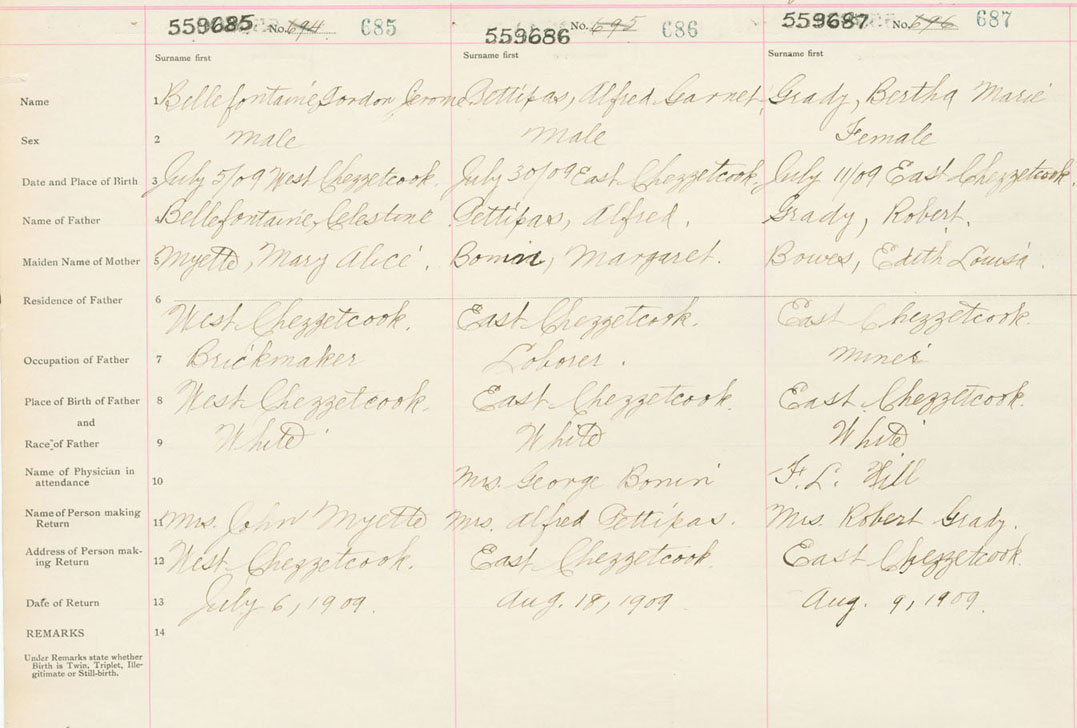 559685 No. 694 685
559686 No. 695 686
559687 No. 696 687
Surname first Surname first Surname first
Name 1 Bellefontaine Gordon Jerome Pettipas, Alfred Garnet Grady, Bertha Marie
Sex 2 male male Female
Date and Place of Birth 3 July 5/09 West Chezzetcook. July 30/09 East Chezzetcook, July 11/09 East Chezzetcook.
Name of Father 4 Bellefontaine, Celestine Pettipas, Alfred. Grady, Robert.
Maiden Name of Mother 5 Myette, Mary Alice. Bonin, Margaret. Bowes, Edith Louisa.
Residence of Father 6 West Chezzetcook. East Chezzetcook. East Chezzetcook.
Occupation of Father 7 Brickmaker Laborer. miner
Place of Birth of Father 8 West Chezzetcook. East Chezzetcook. East Chezzetcook.
and
Race of Father 9 White White White
Name of Physician in
attendance 10 Mrs. George Bonin F. L. Hill
Name of Person making
Return 11 Mrs. John Myette Mrs. Alfred Pettipas. Mrs. Robert Grady.
Address of Person mak-
ing Return 12 West Chezzetcook. East Chezzetcook. East Chezzetcook.
Date of Return 13 July 6, 1909. Aug. 18, 1909 Aug. 9, 1909.
REMARKS 14
Under Remarks state whether
Birth is Twin, Triplet, Ille-
gitimate or Still-birth.